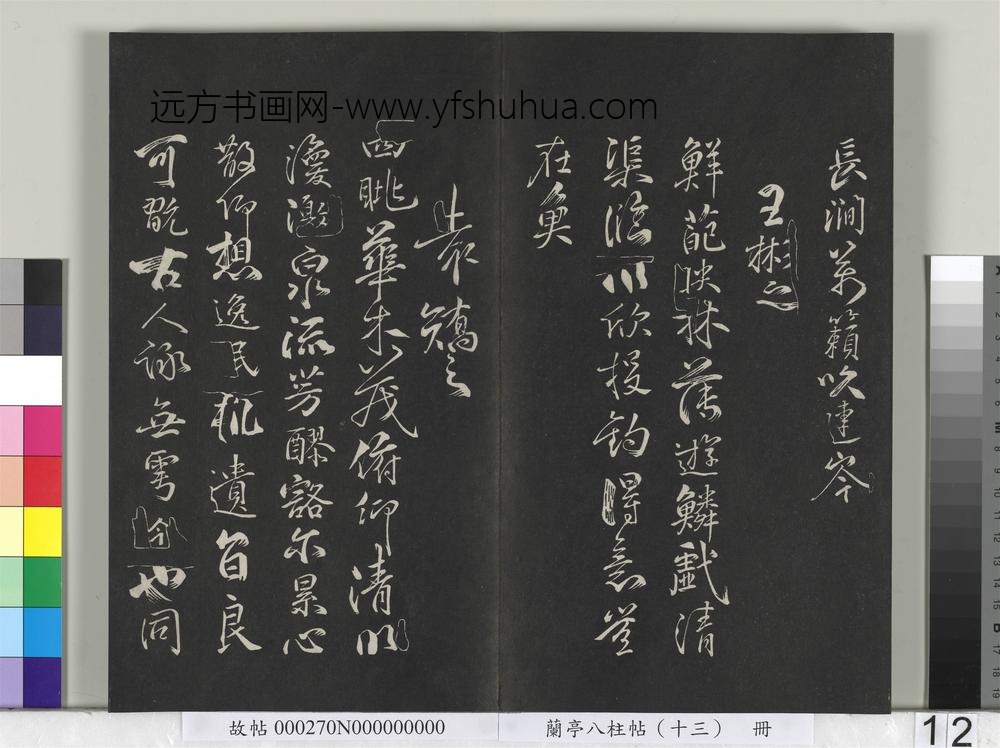 远方书画网-www.yfshuhua.com
長澗萬籟吹連岑
王彬之
鮮葩映林薄遊鱗戲清
渠臨川欣投釣得意豈
在魚
袁矯之
四眺華木茂俯仰清川
渙激泉流芳醪豁尓累心
散仰想逸民軌遺音良
可翫古人詠無雩今也同
故帖 000270N000000000
蘭亭八柱帖（十三） 冊
12